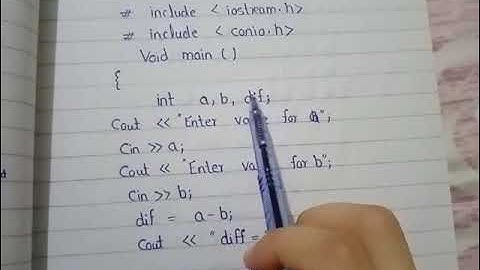 # include < iostream.h>
# include < conio.h>
Void main ( )
{
int a, b, dif;
Cout << "Enter for a";
Cin >> a;
Cout << "Enter for b";
Cin >> b;
dif = a - b;
Cout << " diff =